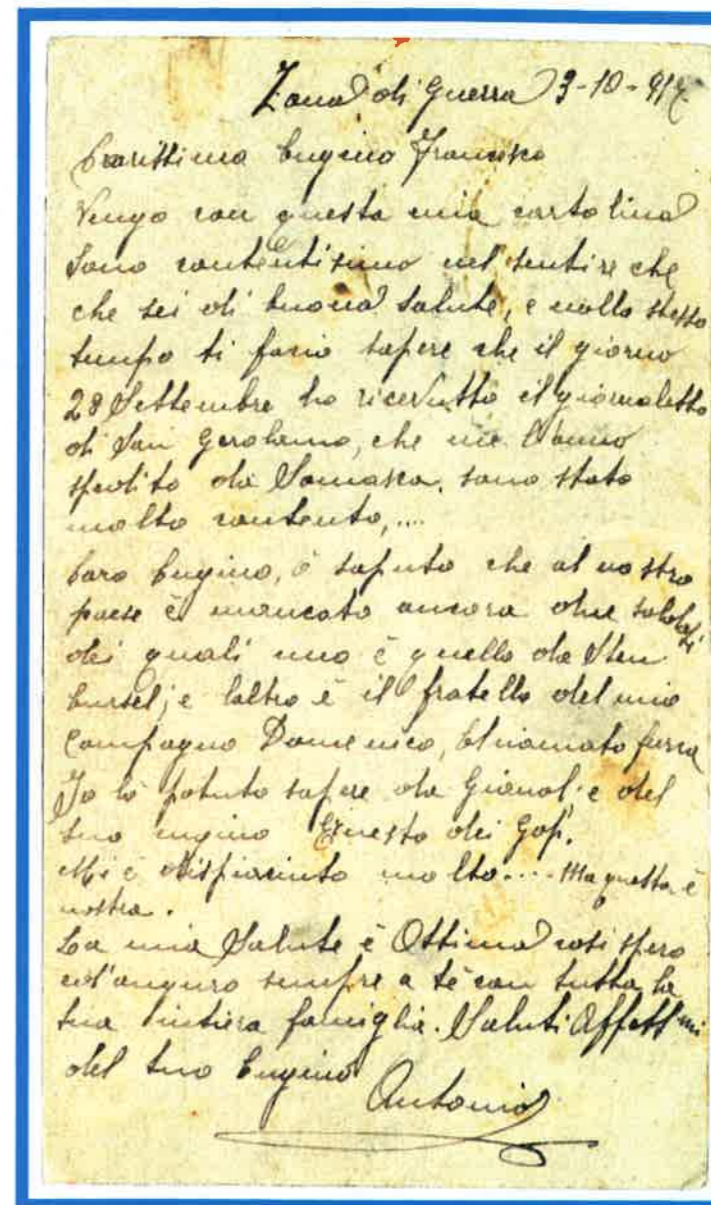 Zona di Guerra 3-10-917
Carissimo Cugino Francesco
Vengo con questa mia cartolina
Sono contentisimo nel sentire che
che sei di buona Salute, e nello stesso
tempo ti facio sapere che il giorno
28 Settembre ho ricevutto il giornaletto
di San Gerolamo, che me l'anno
spedito da Somasca, sono stato
molto contento,....
Caro Cugino, ò saputo che al nostro
paese è mancato ancora due soldati
dei quali uno è quello da
e laltro è il fratello del mio
Compagno Domenico, Chiamato
Io lò potuto sapere da e del
tuo cugino Ernesto dei
Mi è dispiaciuto molto.... Ma questa è
nostra.
La mia Salute è Ottima così spero
ed'auguro sempre a tè con tutta la
tua intiera famiglia. Saluti Affett.mi
del tuo Cugino
Antonio